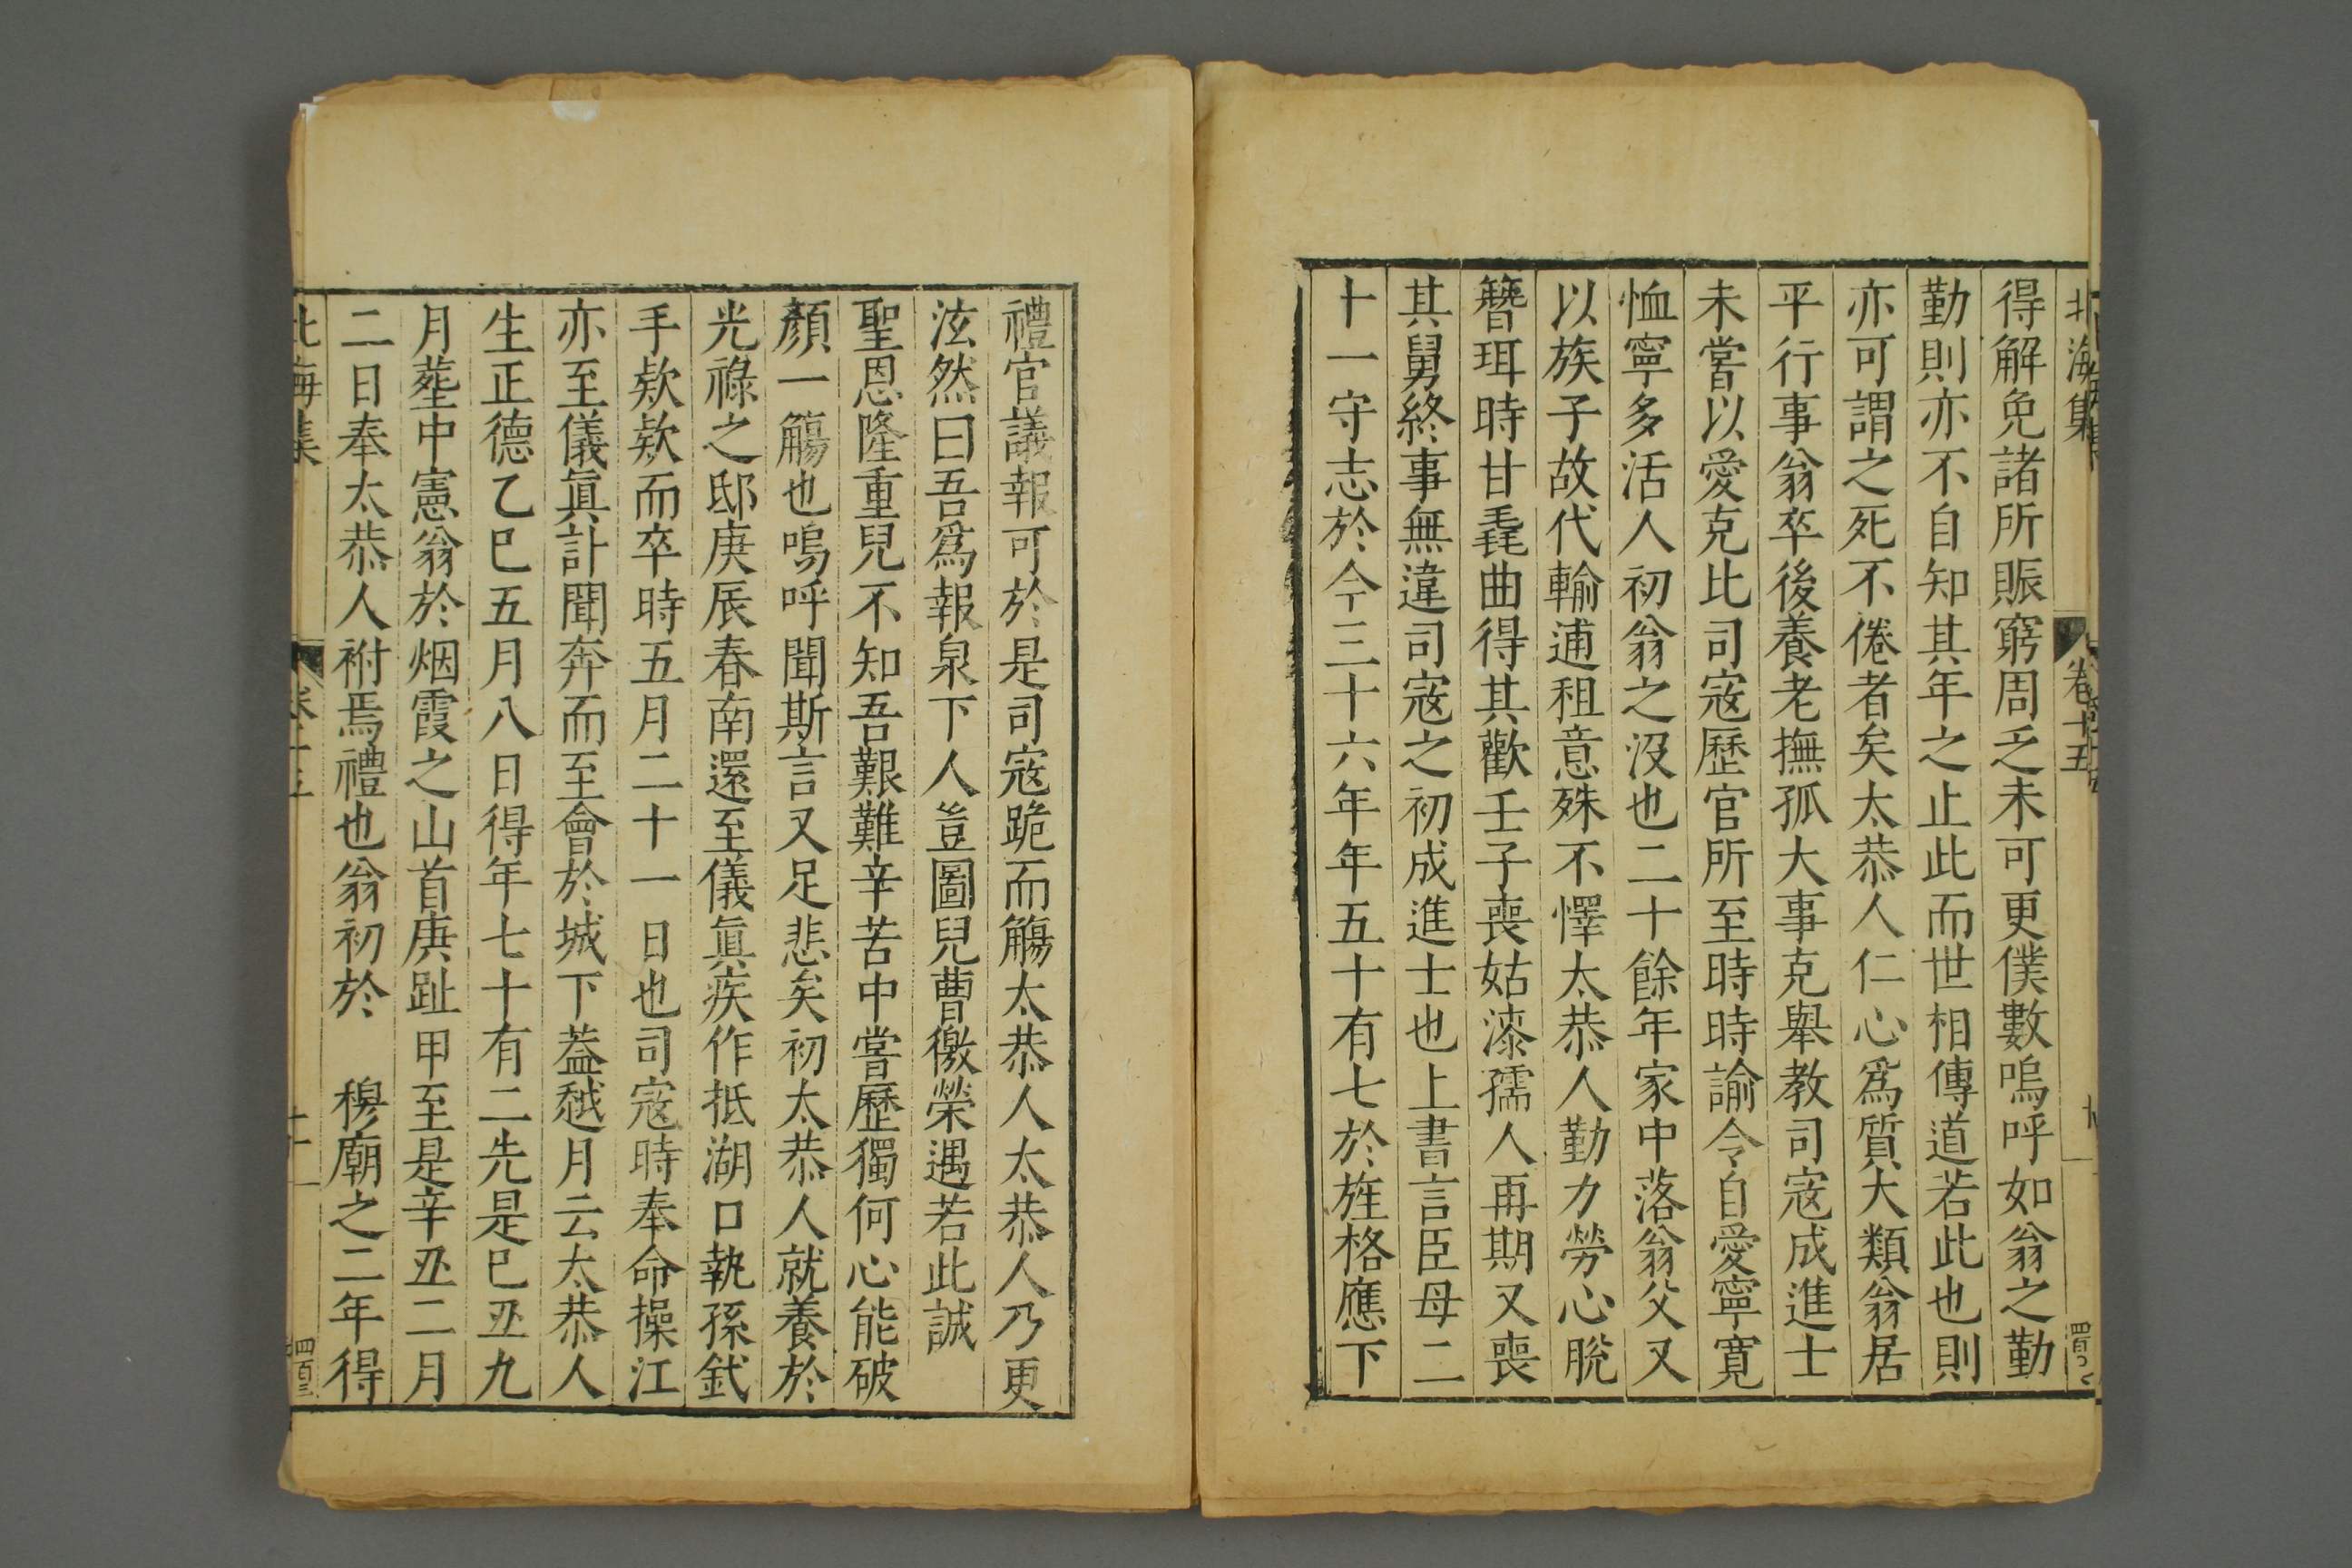 北海集 卷十五
得解免諸所賑窮周乏未可更僕數嗚呼如翁之勤
勤則亦不自知其年之止此而世相傳道若此也則
亦可謂之死不倦者矣太恭人仁心爲質大類翁居
平行事翁卒後養老撫孤大事克舉教司寇成進士
未嘗以愛克比司寇歷官所至時時諭令自愛寧寬
恤寧多活人初翁之沒也二十餘年家中落翁父又
以族子故代輸逋租意殊不懌太恭人勤力勞心脫
簪珥時甘毳曲得其歡壬子喪姑漆孺人再期又喪
其舅終事無違司寇之初成進士也上書言臣母二
十一守志於今三十六年年五十有七於旌格應下
禮官議報可於是司寇跪而觴太恭人太恭人乃更
泫然曰吾爲報泉下人豈圖兒曹徼榮遇若此誠
聖恩隆重兒不知吾艱難辛苦中嘗歷獨何心能破
顏一觴也嗚呼聞斯言又足悲矣初太恭人就養於
光祿之邸庚辰春南還至儀眞疾作抵湖口執孫鈛
手欵欵而卒時五月二十一日也司寇時奉命操江
亦至儀眞訃聞奔而至會於城下葢越月云太恭人
生正德乙巳五月八日得年七十有二先是巳丑九
月塟中憲翁於烟霞之山首庚趾甲至是辛丑二月
二日奉太恭人祔焉禮也翁初於　穆廟之二年得
北海集 卷十五